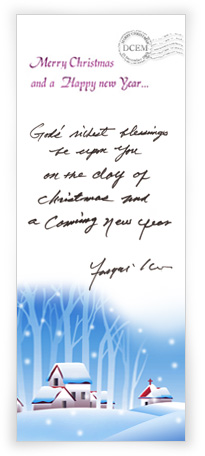 DCEM
Merry Christmas
and a Happy new Year...
God's richest blessings
be upon you
on the day of
Christmas and
a Coming New year